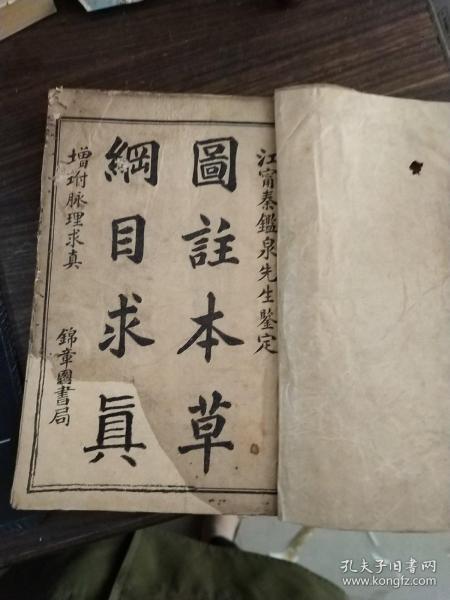 江甯秦鑑泉先生鑒定
圖註本草
綱目求眞
增坿脉理求真
錦章圖書局
孔夫子旧书网
www.kongfz.com